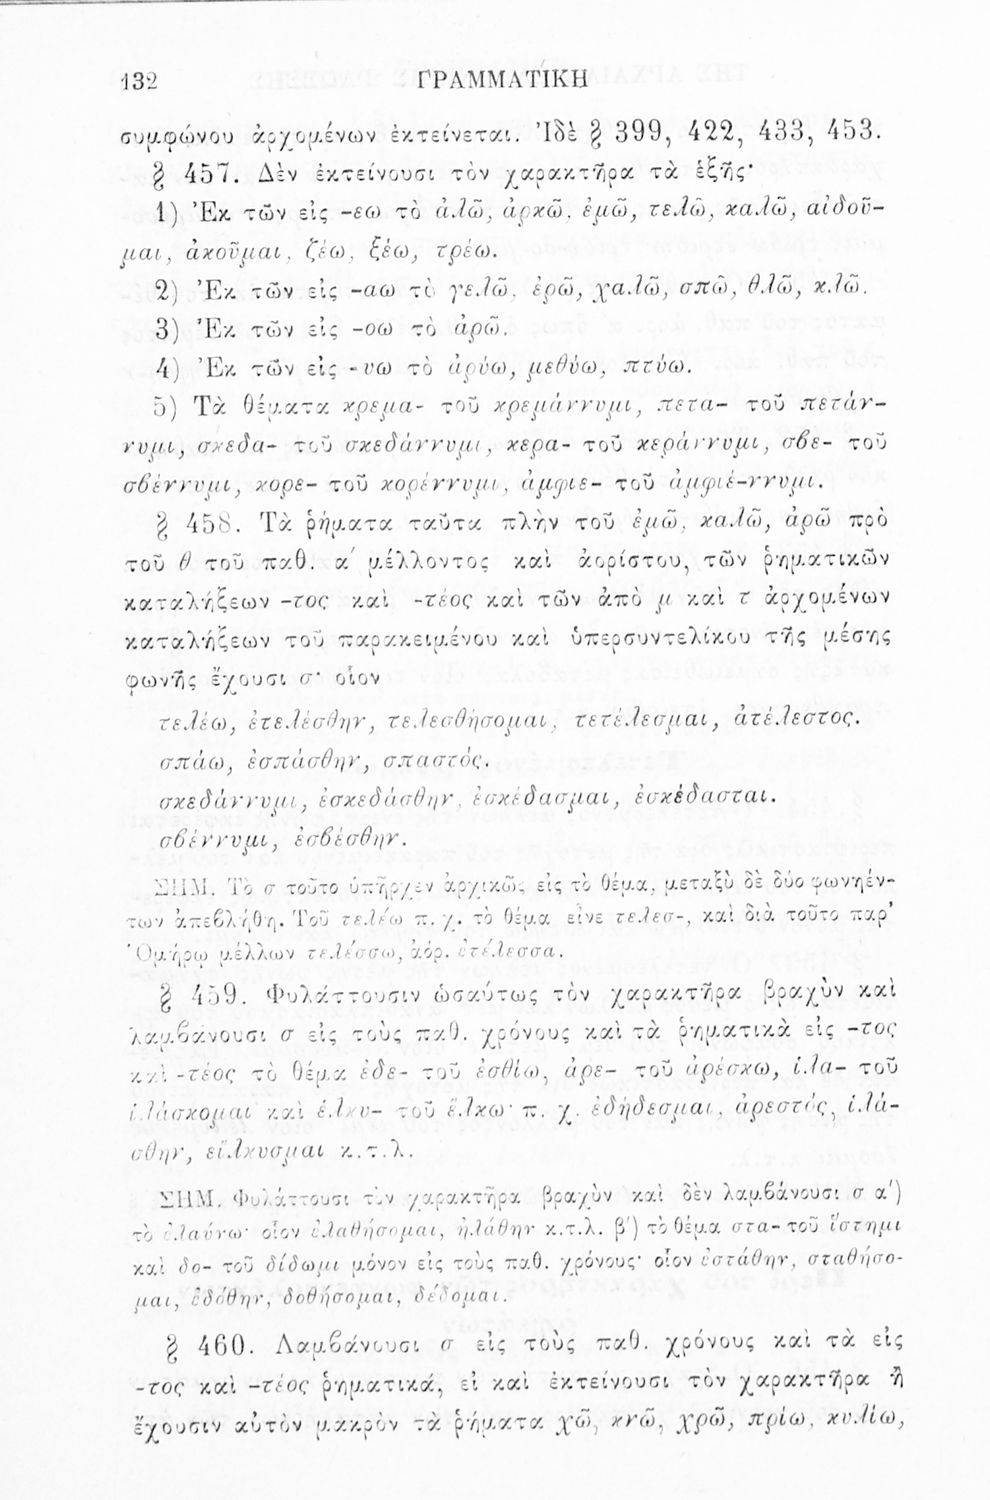 132 ΓΡΑΜΜΑΤΙΚΗ
συμφώνου ἀρχομένων ἐκτείνεται. Ἰδὲ § 399, 422, 433, 453.
§ 457. Δὲν ἐκτείνουσι τὸν χαρακτῆρα τὰ ἑξῆς·
1) Ἐκ τῶν εἰς -εω τὸ ἀλῶ, ἀρκῶ, ἐμῶ, τελῶ, καλῶ, αἰδοῦ-
μαι, ἀκοῦμαι, ζέω, ξέω, τρέω.
2) Ἐκ τῶν εἰς -αω τὸ γελῶ, ἐρῶ, χαλῶ, σπῶ, θλῶ, κλῶ.
3) Ἐκ τῶν εἰς -οω τὸ ἀρῶ.
4) Ἐκ τῶν εἰς -υω τὸ ἀρύω, μεθύω, πτύω.
5) Τὰ θέματα κρεμα- τοῦ κρεμάννυμι, πετα- τοῦ πετάν-
νυμι, σκεδα- τοῦ σκεδάννυμι, κερα- τοῦ κεράννυμι, σβε- τοῦ
σβέννυμι, κορε- τοῦ κορέννυμι, ἀμφιε- τοῦ ἀμφιέ-ννυμι.
§ 458. Τὰ ῥήματα ταῦτα πλὴν τοῦ ἐμῶ, καλῶ, ἀρῶ πρὸ
τοῦ θ τοῦ παθ. α΄ μέλλοντος καὶ ἀορίστου, τῶν ῥηματικῶν
καταλήξεων -τος καὶ -τέος καὶ τῶν ἀπὸ μ καὶ τ ἀρχομένων
καταλήξεων τοῦ παρακειμένου καὶ ὑπερσυντελίκου τῆς μέσης
φωνῆς ἔχουσι σ· οἷον
τελέω, ἐτελέσθην, τελεσθήσομαι, τετέλεσμαι, ἀτέλεστος.
σπάω, ἐσπάσθην, σπαστός.
σκεδάννυμι, ἐσκεδάσθην, ἐσκέδασμαι, ἐσκέδασται.
σβέννυμι, ἐσβέσθην.
ΣΗΜ. Τὸ σ τοῦτο ὑπῆρχεν ἀρχικῶς εἰς τὸ θέμα, μεταξὺ δὲ δύο φωνηέν-
των ἀπεβλήθη. Τοῦ τελέω π. χ. τὸ θέμα εἶνε τελεσ-, καὶ διὰ τοῦτο παρ'
Ὁμήρῳ μέλλων τελέσσω, ἀόρ. ἐτέλεσσα.
§ 459. Φυλάττουσιν ὡσαύτως τὸν χαρακτῆρα βραχὺν καὶ
λαμβάνουσι σ εἰς τοὺς παθ. χρόνους καὶ τὰ ῥηματικὰ εἰς -τος
καὶ -τέος τὸ θέμα ἐδε- τοῦ ἐσθίω, ἀρε- τοῦ ἀρέσκω, ἱλα- τοῦ
ἱλάσκομαι καὶ ἑλκυ- τοῦ ἕλκω· π. χ. ἐδήδεσμαι, ἀρεστός, ἱλά-
σθην, εἵλκυσμαι κ.τ.λ.
ΣΗΜ. Φυλάττουσι τὸν χαρακτῆρα βραχὺν καὶ δὲν λαμβάνουσι σ α΄)
τὸ ἐλαύνω· οἷον ἐλαθήσομαι, ἠλάθην κ.τ.λ. β΄) τὸ θέμα στα- τοῦ ἵστημι
καὶ δο- τοῦ δίδωμι μόνον εἰς τοὺς παθ. χρόνους· οἷον ἐστάθην, σταθήσο-
μαι, ἐδόθην, δοθήσομαι, δέδομαι.
§ 460. Λαμβάνουσι σ εἰς τοὺς παθ. χρόνους καὶ τὰ εἰς
-τος καὶ -τέος ῥηματικά, εἰ καὶ ἐκτείνουσι τὸν χαρακτῆρα ἢ
ἔχουσιν αὐτὸν μακρὸν τὰ ῥήματα χῶ, κνῶ, χρῶ, πρίω, κυλίω,